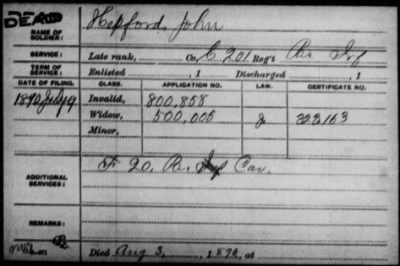 DEAD
NAME OF SOLDIER: Hepford, John
SERVICE: Late rank, Co. C 201 Reg't Pa. Inf
TERM OF SERVICE: Enlisted , 1 Discharged , 1
DATE OF FILING. CLASS. APPLICATION NO. LAW. CERTIFICATE NO.
1890 July 9 Invalid, 800,858
Widow, 500,005 J 333163
Minor,
ADDITIONAL SERVICES: F 20. Pa. Inf Cav.
REMARKS:
Died Aug 3, , 1890, at